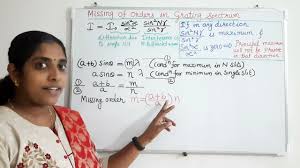 Missing of Orders in Grating Spectrum
I = I₀ sin²α/α² · sin²Nγ/sin²γ
If in any direction
sin²Nγ/sin²γ is maximum &
sin²α/α² is zero => Principal maxima
will not be Present
in that direction
(a+b) sinθ = mλ (Condⁿ for maximum in N slit)
a sinθ = nλ (Condⁿ for minimum in Single slit)
①/② (a+b)/a = m/n
Missing order m = (a+b/a) n